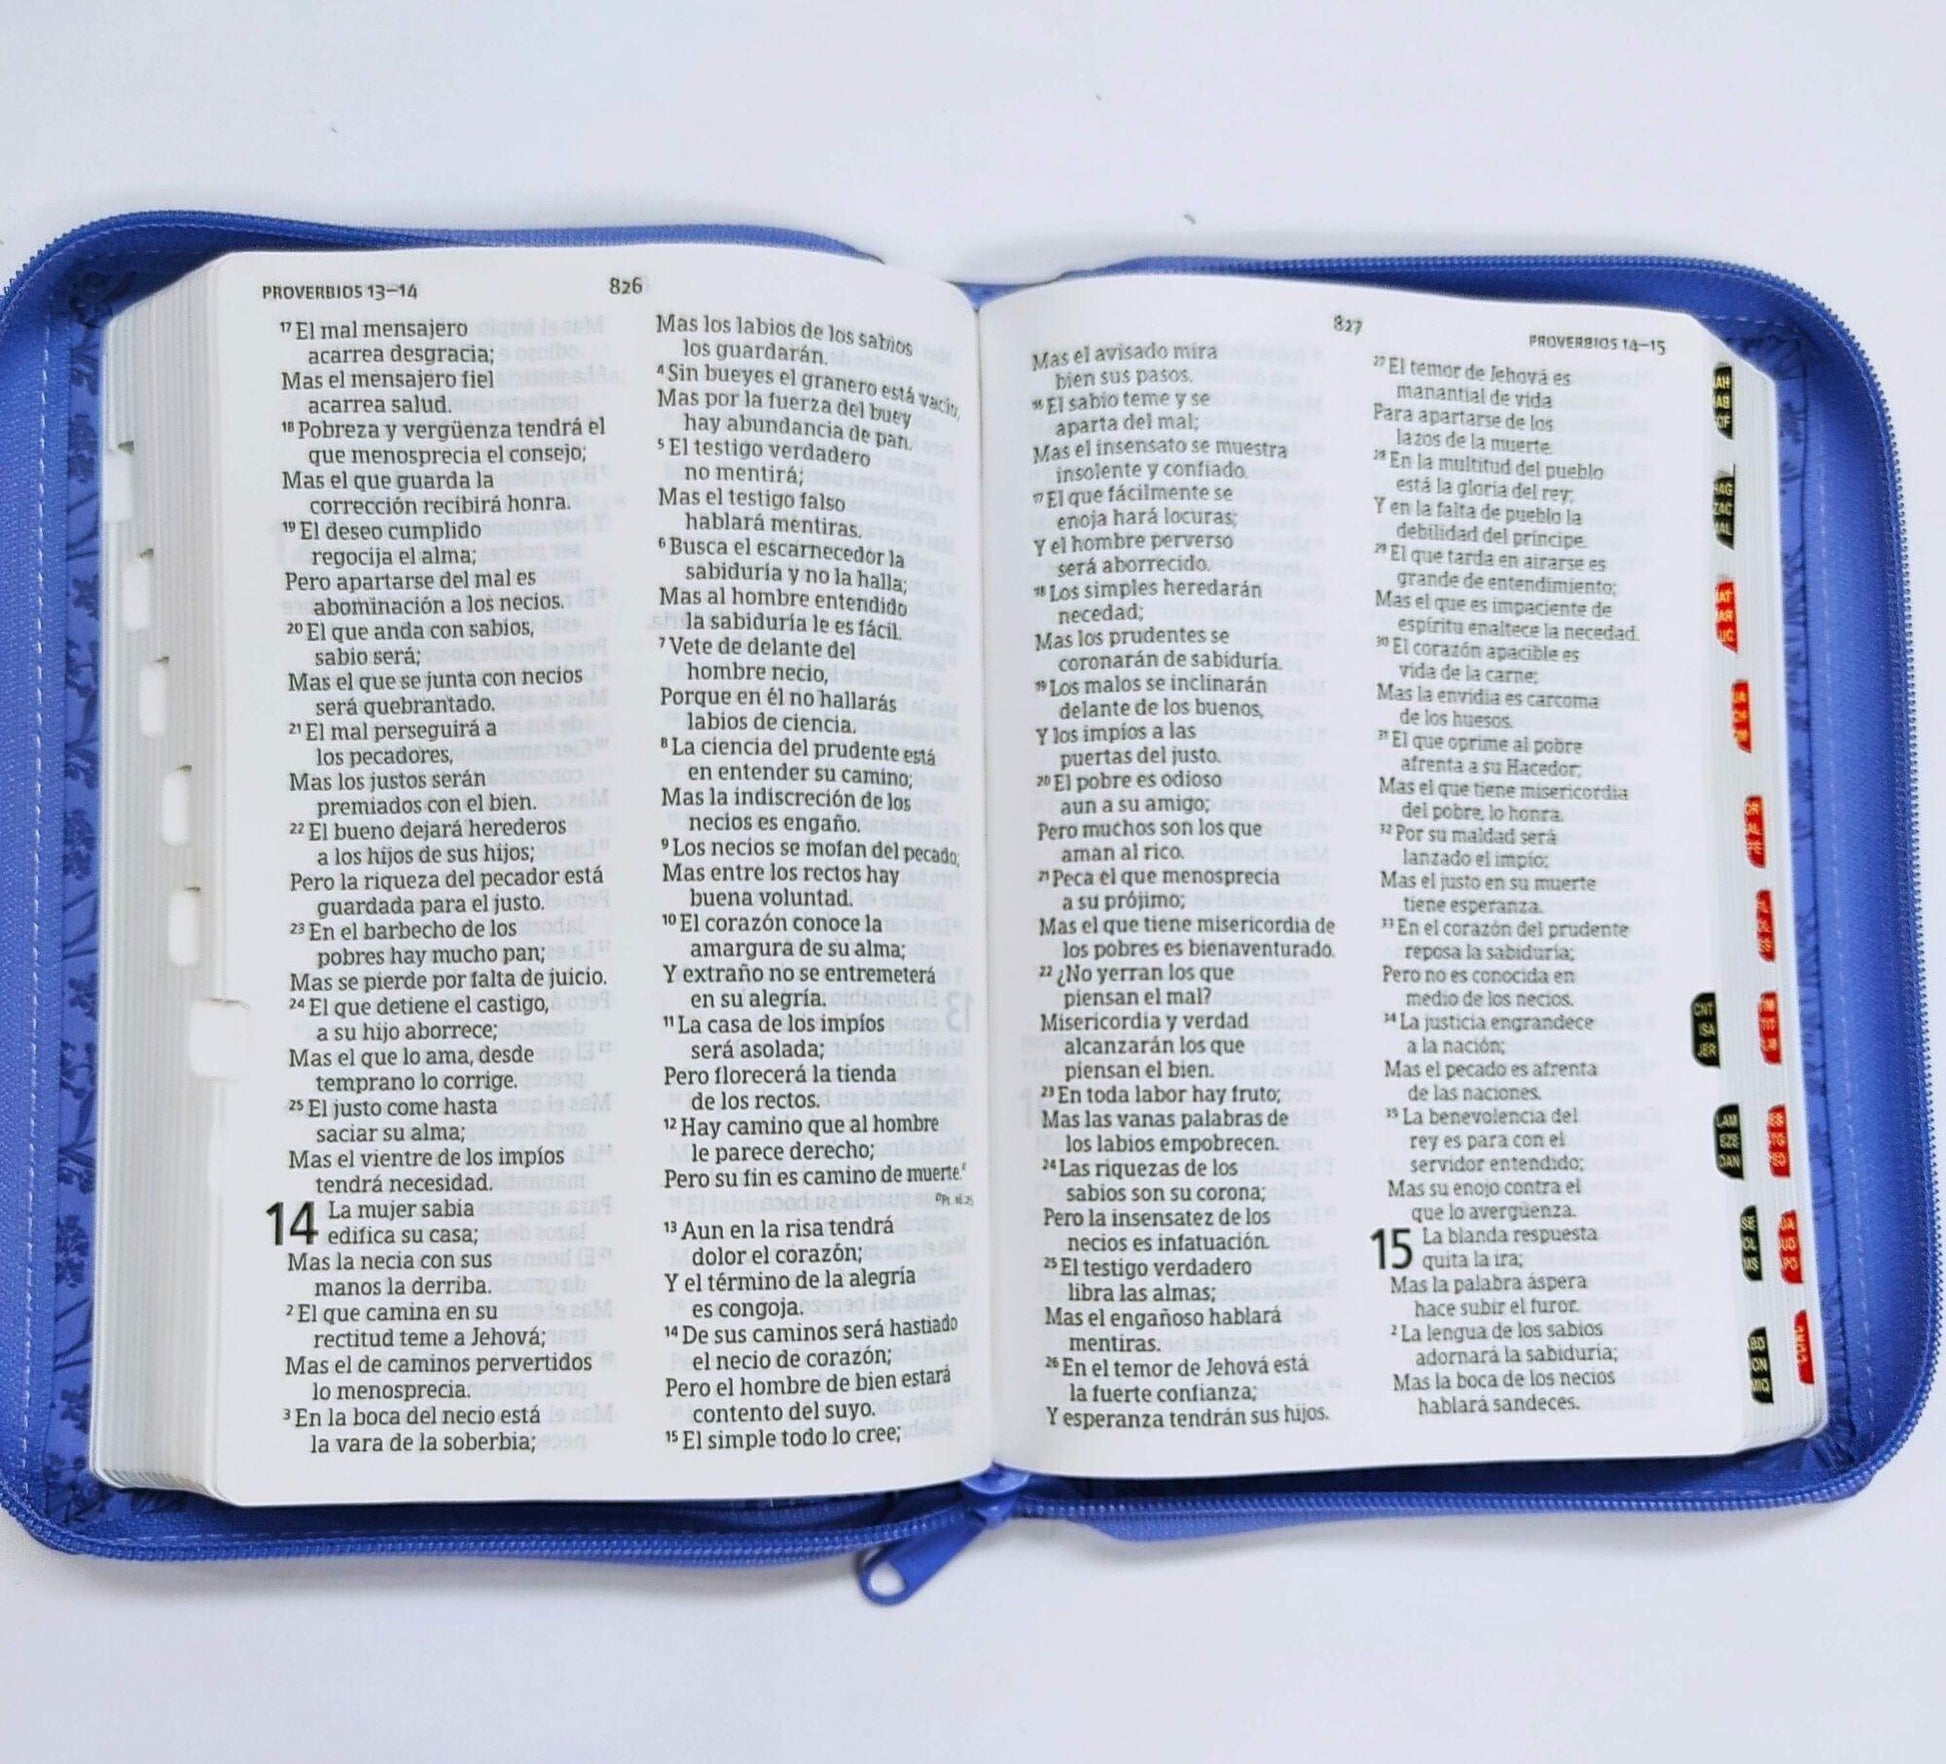 PROVERBIOS 13–14
826
17 El mal mensajero
acarrea desgracia;
Mas el mensajero fiel
acarrea salud.
18 Pobreza y vergüenza tendrá el
que menosprecia el consejo;
Mas el que guarda la
corrección recibirá honra.
19 El deseo cumplido
regocija el alma;
Pero apartarse del mal es
abominación a los necios.
20 El que anda con sabios,
sabio será;
Mas el que se junta con necios
será quebrantado.
21 El mal perseguirá a
los pecadores,
Mas los justos serán
premiados con el bien.
22 El bueno dejará herederos
a los hijos de sus hijos;
Pero la riqueza del pecador está
guardada para el justo.
23 En el barbecho de los
pobres hay mucho pan;
Mas se pierde por falta de juicio.
24 El que detiene el castigo,
a su hijo aborrece;
Mas el que lo ama, desde
temprano lo corrige.
25 El justo come hasta
saciar su alma;
Mas el vientre de los impíos
tendrá necesidad.
14 La mujer sabia
edifica su casa;
Mas la necia con sus
manos la derriba.
2 El que camina en su
rectitud teme a Jehová;
Mas el de caminos pervertidos
lo menosprecia.
3 En la boca del necio está
la vara de la soberbia;
Mas los labios de los sabios
los guardarán.
4 Sin bueyes el granero está vacío;
Mas por la fuerza del buey
hay abundancia de pan.
5 El testigo verdadero
no mentirá;
Mas el testigo falso
hablará mentiras.
6 Busca el escarnecedor la
sabiduría y no la halla;
Mas al hombre entendido
la sabiduría le es fácil.
7 Vete de delante del
hombre necio,
Porque en él no hallarás
labios de ciencia.
8 La ciencia del prudente está
en entender su camino;
Mas la indiscreción de los
necios es engaño.
9 Los necios se mofan del pecado;
Mas entre los rectos hay
buena voluntad.
10 El corazón conoce la
amargura de su alma;
Y extraño no se entremeterá
en su alegría.
11 La casa de los impíos
será asolada;
Pero florecerá la tienda
de los rectos.
12 Hay camino que al hombre
le parece derecho;
Pero su fin es camino de muerte.
Pr. 16:25
13 Aun en la risa tendrá
dolor el corazón;
Y el término de la alegría
es congoja.
14 De sus caminos será hastiado
el necio de corazón;
Pero el hombre de bien estará
contento del suyo.
15 El simple todo lo cree;
827
PROVERBIOS 14–15
Mas el avisado mira
bien sus pasos.
16 El sabio teme y se
aparta del mal;
Mas el insensato se muestra
insolente y confiado.
17 El que fácilmente se
enoja hará locuras;
Y el hombre perverso
será aborrecido.
18 Los simples heredarán
necedad;
Mas los prudentes se
coronarán de sabiduría.
19 Los malos se inclinarán
delante de los buenos,
Y los impíos a las
puertas del justo.
20 El pobre es odioso
aun a su amigo;
Pero muchos son los que
aman al rico.
21 Peca el que menosprecia
a su prójimo;
Mas el que tiene misericordia de
los pobres es bienaventurado.
22 ¿No yerran los que
piensan el mal?
Misericordia y verdad
alcanzarán los que
piensan el bien.
23 En toda labor hay fruto;
Mas las vanas palabras de
los labios empobrecen.
24 Las riquezas de los
sabios son su corona;
Pero la insensatez de los
necios es infatuación.
25 El testigo verdadero
libra las almas;
Mas el engañoso hablará
mentiras.
26 En el temor de Jehová está
la fuerte confianza;
Y esperanza tendrán sus hijos.
27 El temor de Jehová es
manantial de vida
Para apartarse de los
lazos de la muerte.
28 En la multitud del pueblo
está la gloria del rey;
Y en la falta de pueblo la
debilidad del príncipe.
29 El que tarda en airarse es
grande de entendimiento;
Mas el que es impaciente de
espíritu enaltece la necedad.
30 El corazón apacible es
vida de la carne;
Mas la envidia es carcoma
de los huesos.
31 El que oprime al pobre
afrenta a su Hacedor;
Mas el que tiene misericordia
del pobre, lo honra.
32 Por su maldad será
lanzado el impío;
Mas el justo en su muerte
tiene esperanza.
33 En el corazón del prudente
reposa la sabiduría;
Pero no es conocida en
medio de los necios.
34 La justicia engrandece
a la nación;
Mas el pecado es afrenta
de las naciones.
35 La benevolencia del
rey es para con el
servidor entendido;
Mas su enojo contra el
que lo avergüenza.
15 La blanda respuesta
quita la ira;
Mas la palabra áspera
hace subir el furor.
2 La lengua de los sabios
adornará la sabiduría;
Mas la boca de los necios
hablará sandeces.
CNT
ISA
JER
LAM
EZE
DAN